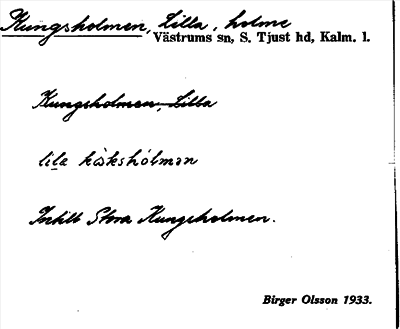 Kungsholmen, Lilla, holme
Västrums sn, S. Tjust hd, Kalm. l.
Kungsholmen, Lilla
lila
Intill Stora Kungsholmen.
Birger Olsson 1933.